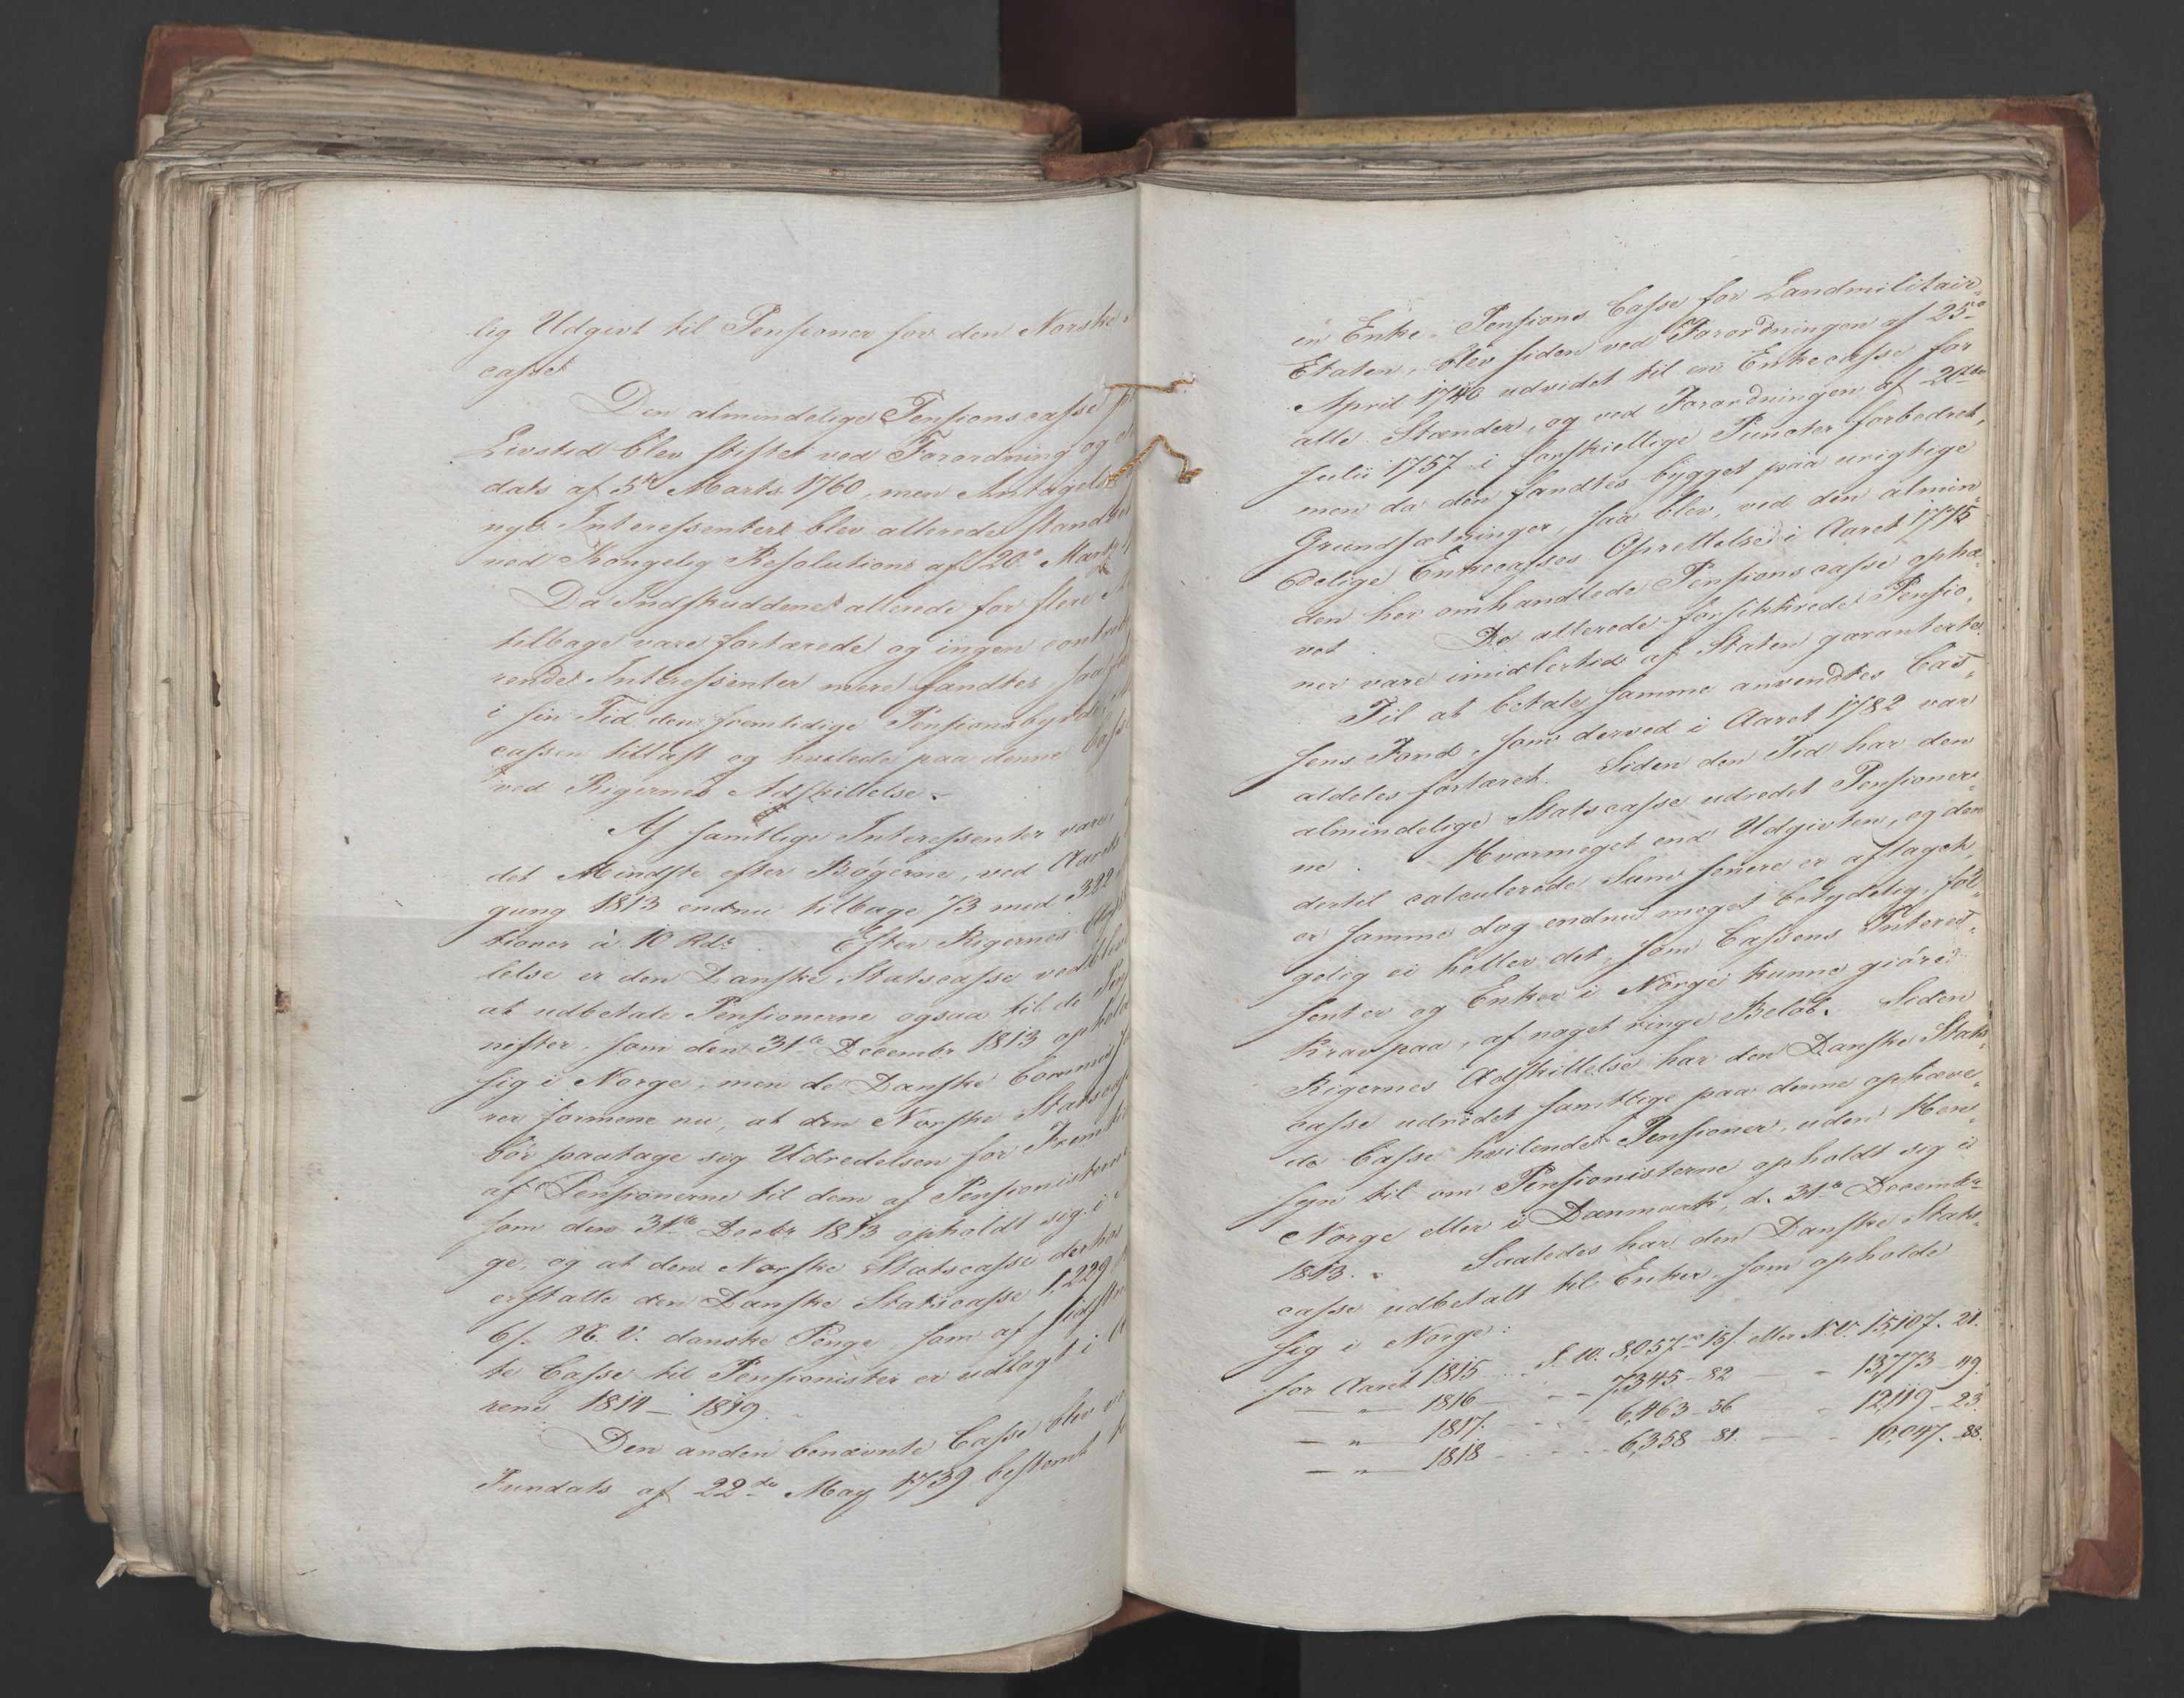 lig Udgivt til Pensioner for den Norske
casse
Den almindelige Pensionscasse
Livstid blev stiftet ved Forordning og
dats af 5te Marts 1760, men Antagelse
nye Interessenter blev allerede standset
ved Kongelig Resolution af 20de Marts
Da Indskuddene allerede for flere
tilbage vare fortærede og ingen contribu
rende Interessenter mere fandtes, saa
i sin Tid den fremtidige Pensionsbyrde
cassen tillagt og hvilede paa denne Casse
ved Rigernes Adskillelse.
Af samtlige Interessenter vare,
det Mindste efter Bøgerne, ved Aarets
gang 1813 endnu tilbage 73 med 322
tioner à 10 Rdr. Efter Rigernes Adskil
lelse er den Danske Statscasse vedblevet
at udbetale Pensionerne ogsaa til de Pen
nister, som den 31te Decembr 1813 opholdt
sig i Norge, men de Danske Commissa
rer formene nu, at den Norske Statscasse
bør paatage sig Udredelsen for Fremtiden
af Pensionerne til dem af Pensionisterne
som den 31te Decbr 1813 opholdt sig i
ge, og at den Norske Statscasse derhos
erstatte den Danske Statscasse 1,229
6 s. N. V. danske Penge, som af sidst
te Casse til Pensionister er udlagt i Aa
rene 1814 – 1819.
Den anden benævnte Casse blev ved
Fundats af 22de May 1739 bestemt
en Enke-Pensions Casse for Landmilitair-
Etaten, blev siden ved Forordningen af 25de
April 1740 udvidet til en Enkecasse for
alle Stænder, og ved Forordningen af 20de
Julii 1757 i forskiellige Puncter forbedret,
men da den fandtes bygget paa urigtige
Grundsætninger, saa blev, ved den almin-
delige Enkecasses Oprettelse i Aaret 1775
den her omhandlede Pensionscasse ophæ-
vet. De allerede forsikkrede Pensio-
ner vare imidlertid af Staten garanterte.
Til at betale samme anvendtes Cas-
sens Fond, som derved i Aaret 1782 var
aldeles fortæret. Siden den Tid har den
almindelige Statscasse udredet Pensioner-
ne. Hvormeget end Udgivten, og den
dertil calculerede Sum senere er aftaget,
er samme dog endnu meget betydelig, føl-
gelig ei heller det, som Cassens Interes-
senter og Enker i Norge kunne giøre
Krav paa, af noget ringe Beløb. Siden
Rigernes Adskillelse har den Danske Stats-
casse udredet samtlige paa denne ophæve-
de Casse hvilende Pensioner, uden Hen-
syn til om Pensionisterne opholdt sig i
Norge eller i Danmark, d. 31te Decembr
1813. Saaledes har den Danske Stats-
casse udbetalt til Enker, som opholde
sig i Norge:
for Aaret 1815 .... S. W. 8,057 – 15 s. eller N. V. 15,107. 21.
— „ — 1816 – – 7,345 – 82 — – 13,773 – 49.
— „ — 1817. – – 6,463 – 36 – 12,119 – 23.
— „ — 1818 – – 6,358 – 81. — – 10,047. – 88.